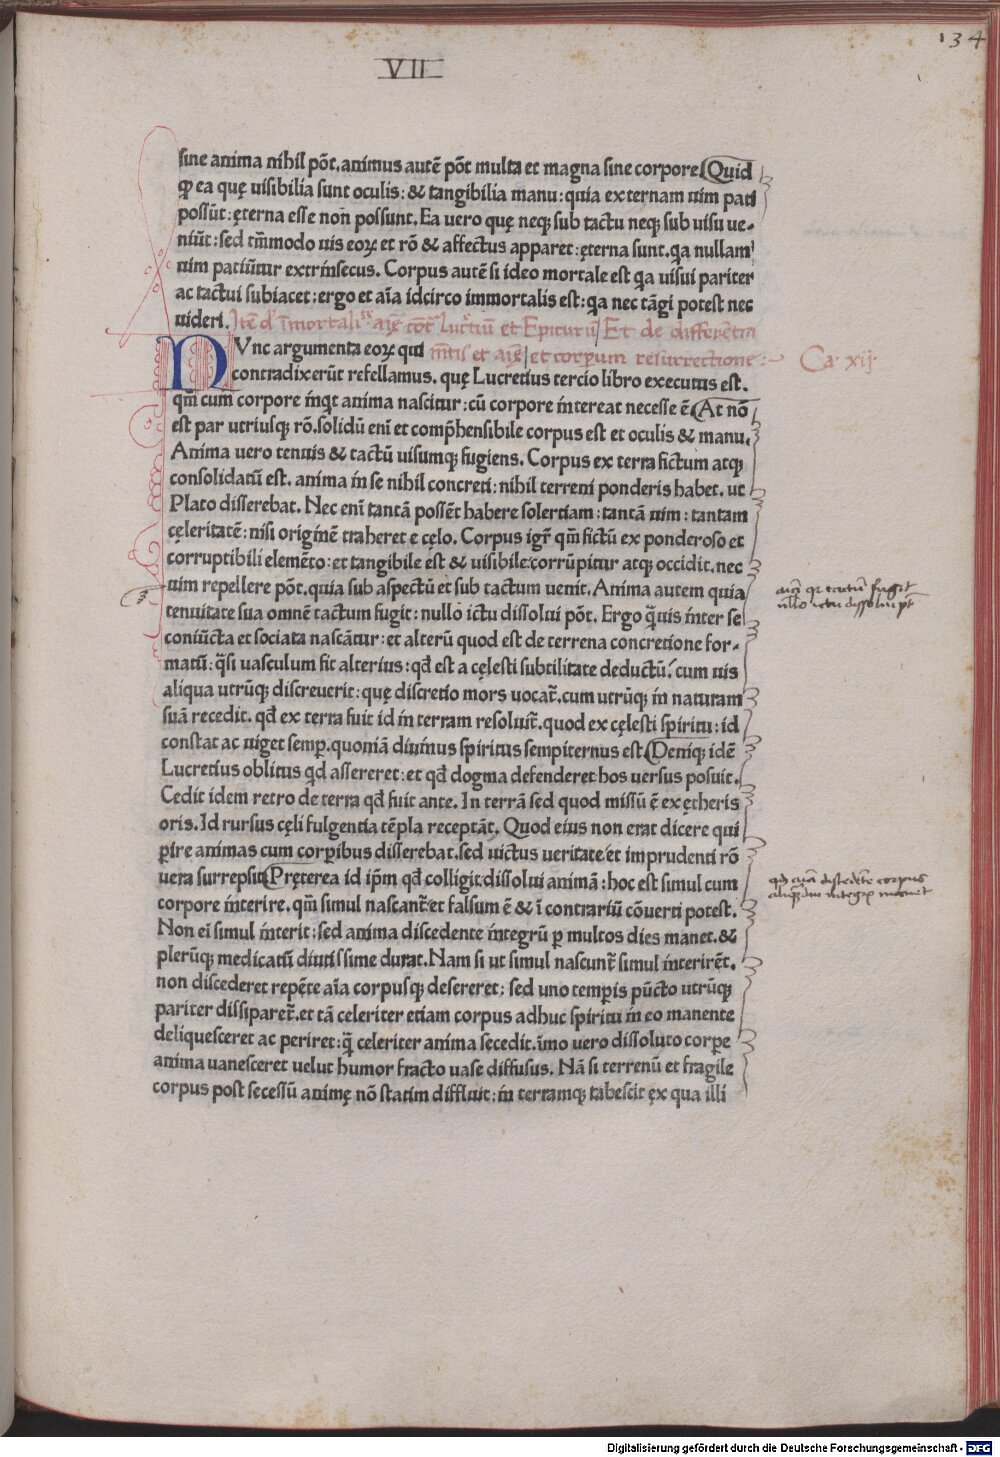 134
VII
sine anima nihil põt.animus autē põt multa et magna sine corpore.Quid
ꝙ ea quę uisibilia sunt oculis:& tangibilia manu:quia externam uim pati
possūt:ęterna esse non possunt.Ea uero quę neqꝫ sub tactu neqꝫ sub uisu ue-
niūt:sed tm̄modo uis eoꝝ et rō & affectus apparet:ęterna sunt.qa nullam
uim patiūtur extrinsecus. Corpus autē si ideo mortale est qa uisui pariter
ac tactui subiacet:ergo et aīa idcirco immortalis est:qa nec tāgi potest nec
uideri. Itē d' īmortali aīę Lucr̄tiū et Epicurū Et de differētia
NVnc argumenta eoꝝ qui mētis et aīę et corporum resurrectione:- Ca. xij.
contradixerūt refellamus. quę Lucretius tercio libro executus est.
qm̄ cum corpore inqt anima nascitur:cū corpore intereat necesse ē.At nō
est par utriusqꝫ rō.solidū enī et comp̄hensibile corpus est et oculis & manu.
Anima uero tenuis & tactū uisumqꝫ fugiens. Corpus ex terra fictum atqꝫ
consolidatū est. anima in se nihil concreti:nihil terreni ponderis habet. ut
Plato disserebat. Nec enī tantā possēt habere solertiam:tantā uim:tantam
cęleritatē:nisi originē traheret e cęlo. Corpus igr̄ qm̄ fictū ex ponderoso et
corruptibili elemēto:et tangibile est & uisibile:corrūpitur atqꝫ occidit.nec
uim repellere põt.quia sub aspectū et sub tactum uenit.Anima autem quia
tenuitate sua omnē tactum fugit:nullo ictu dissolui põt. Ergo q̄uis inter se
coniūcta et sociata nascātur:et alterū quod est de terrena concretione for-
matū:q̄si uasculum sit alterius:qd̄ est a cęlesti subtilitate deductū:cum uis
aliqua utrūqꝫ discreuerit:quę discretio mors uocat̄.cum utrūqꝫ in naturam
suā recedit. qd̄ ex terra fuit id in terram resoluit̄.quod ex cęlesti spiritu:id
constat ac uiget semp̄.quoniā diuinus spiritus sempiternus est.Deniqꝫ idē
Lucretius oblitus qd̄ assereret:et qd̄ dogma defenderet hos uersus posuit.
Cedit idem retro de terra qd̄ fuit ante. In terrā sed quod missū ē ex ętheris
oris.Id rursus cęli fulgentia tēpla receptāt. Quod eius non erat dicere qui
ꝑire animas cum corꝑibus disserebat.sed uictus ueritate et imprudenti rō
uera surrepsit.Pręterea id ip̄m qd̄ colligit:dissolui animā:hoc est simul cum
corpore interire.qm̄ simul nascant̄:et falsum ē & ī contrariū cōuerti potest.
Non ei simul interit:sed anima discedente integrū ꝑ multos dies manet.&
plerūqꝫ medicatū diutissime durat.Nam si ut simul nascunt̄ simul interirēt.
non discederet repēte aīa corpusqꝫ desereret:sed uno temꝑis pūcto utrūqꝫ
pariter dissiparet̄.et tā celeriter etiam corpus adhuc spiritu in eo manente
deliquesceret ac periret:q̄ celeriter anima secedit.īmo uero dissoluto corꝑe
anima uanesceret velut humor fracto uase diffusus. Nā si terrenū et fragile
corpus post secessū animę nō statim diffluit:in terramqꝫ tabescit ex qua illi
tactū fugit
nullo ictu dissolui pt̄
discedēte corpus
manet
Digitalisierung gefördert durch die Deutsche Forschungsgemeinschaft - DFG